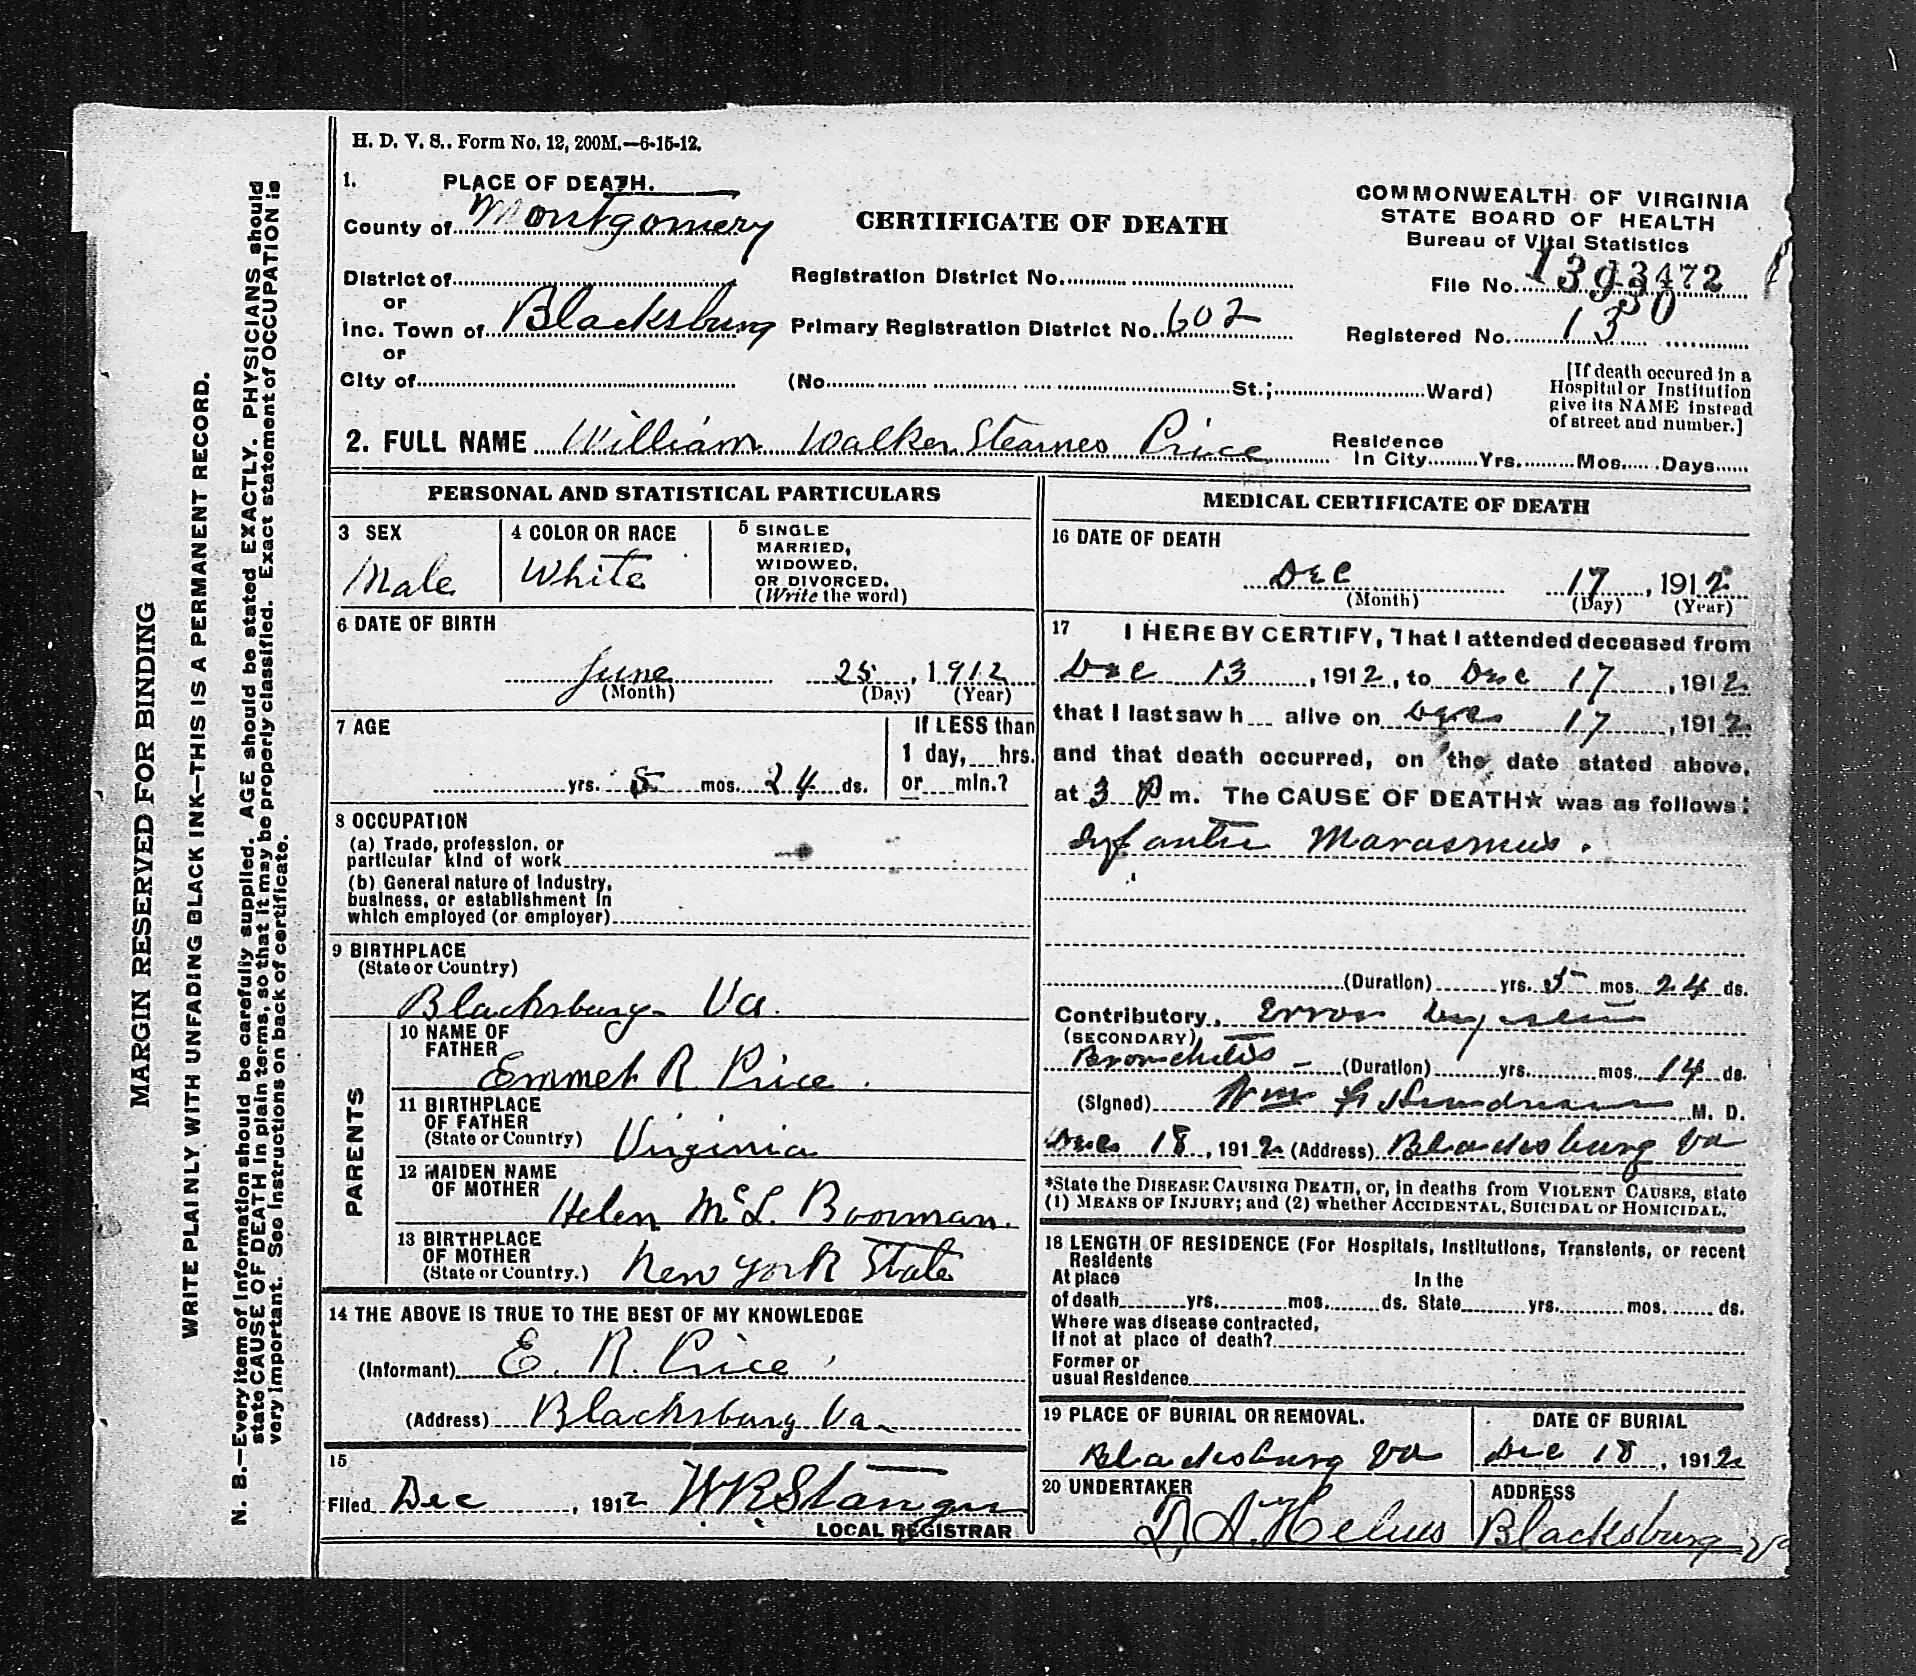 H. D. V. S.. Form No. 12, 200M.—6-15-12.
1. PLACE OF DEATH.
County of Montgomery
CERTIFICATE OF DEATH
COMMONWEALTH OF VIRGINIA
STATE BOARD OF HEALTH
Bureau of Vital Statistics
District of
or
Registration District No.
File No.
Inc. Town of Blacksburg
Primary Registration District No. 602
Registered No. 13
or
City of
(No. St.; Ward)
[If death occured in a
Hospital or Institution
give its NAME instead
of street and number.]
2. FULL NAME William Walker Stearnes Price
Residence
In City Yrs. Mos. Days
PERSONAL AND STATISTICAL PARTICULARS
3 SEX
Male
4 COLOR OR RACE
White
5 SINGLE
MARRIED,
WIDOWED,
OR DIVORCED.
(Write the word)
6 DATE OF BIRTH
June 25, 1912
(Month) (Day) (Year)
7 AGE
yrs. 5 mos. 24 ds.
If LESS than
1 day, hrs.
or min.?
8 OCCUPATION
(a) Trade, profession, or
particular kind of work
(b) General nature of Industry,
business, or establishment in
which employed (or employer)
9 BIRTHPLACE
(State or Country)
Blacksburg Va.
PARENTS
10 NAME OF
FATHER
Emmet R. Price.
11 BIRTHPLACE
OF FATHER
(State or Country) Virginia
12 MAIDEN NAME
OF MOTHER
Helen McL. Boorman.
13 BIRTHPLACE
OF MOTHER
(State or Country.) New York State
14 THE ABOVE IS TRUE TO THE BEST OF MY KNOWLEDGE
(Informant) E. R. Price
(Address) Blacksburg Va
15
Filed Dec, 1912 W R Stanger
LOCAL REGISTRAR
MEDICAL CERTIFICATE OF DEATH
16 DATE OF DEATH
Dec 17, 1912
(Month) (Day) (Year)
17 I HEREBY CERTIFY, That I attended deceased from
Dec 13, 1912, to Dec 17, 1912
that I last saw h alive on Dec 17, 1912
and that death occurred, on the date stated above,
at 3 P m. The CAUSE OF DEATH* was as follows:
Infantile Marasmus.
(Duration) yrs. 5 mos. 24 ds.
Contributory
(SECONDARY)
Bronchitis – (Duration) yrs. mos. 14 ds.
(Signed) Wm M. D.
Dec 18, 1912 (Address) Blacksburg Va
*State the DISEASE CAUSING DEATH, or, in deaths from VIOLENT CAUSES, state
(1) MEANS OF INJURY; and (2) whether ACCIDENTAL, SUICIDAL or HOMICIDAL.
18 LENGTH OF RESIDENCE (For Hospitals, Institutions, Transients, or recent
Residents
At place In the
of death yrs. mos. ds. State yrs. mos. ds.
Where was disease contracted,
If not at place of death?
Former or
usual Residence
19 PLACE OF BURIAL OR REMOVAL.
Blacksburg Va
DATE OF BURIAL
Dec 18, 1912
20 UNDERTAKER
Helms
ADDRESS
Blacksburg Va
MARGIN RESERVED FOR BINDING
WRITE PLAINLY WITH UNFADING BLACK INK—THIS IS A PERMANENT RECORD.
N. B.—Every item of information should be carefully supplied. AGE should be stated EXACTLY. PHYSICIANS should
state CAUSE OF DEATH in plain terms, so that it may be properly classified. Exact statement of OCCUPATION is
very important. See instructions on back of certificate.